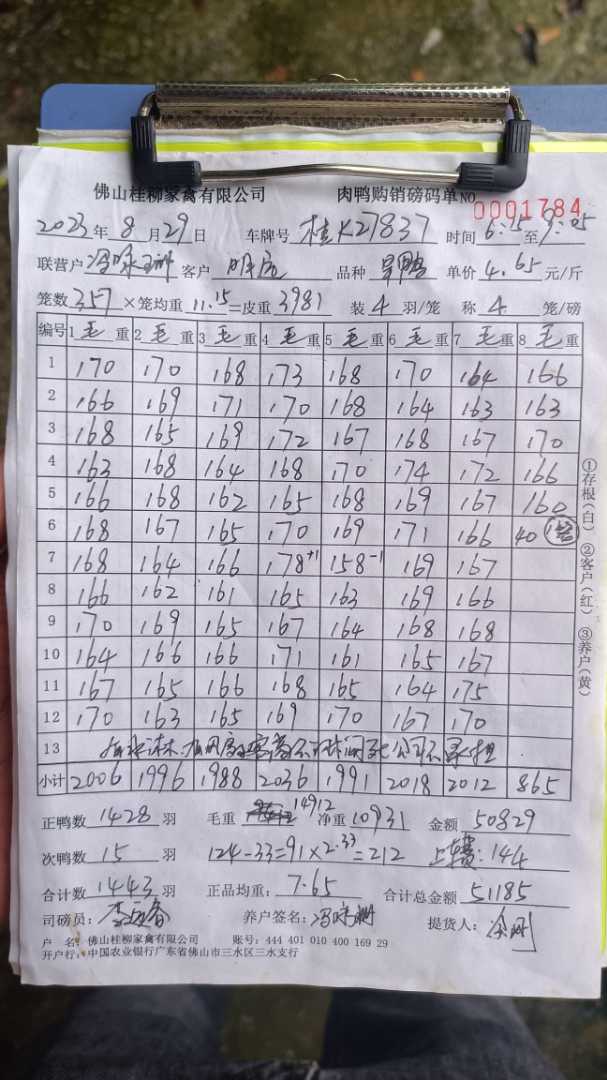 佛山桂柳家禽有限公司 肉鸭购销磅码单 NO 0001784
2023年8月29日 车牌号 桂K27837 时间 6:15至9:05
联营户 冯 客户 明 品种 鸭 单价 4.65元/斤
笼数 357×笼均重 11.15=皮重 3981 装 4 羽/笼 称 4 笼/磅
编号 1毛重 2毛重 3毛重 4毛重 5毛重 6毛重 7毛重 8毛重
1 170 170 168 173 168 170 164 166
2 166 169 171 170 168 164 163 163
3 168 165 169 172 167 168 167 170
4 163 168 164 168 170 174 172 166
5 166 168 162 165 168 169 167 160
6 168 167 165 170 169 171 166 40
7 168 164 166 178+1 158-1 169 167
8 166 162 161 165 163 169 166
9 170 169 165 167 164 168 168
10 164 166 166 171 161 165 167
11 167 165 166 168 165 164 175
12 170 163 165 169 170 167 170
13 公司不承担
小计 2006 1996 1988 2036 1991 2018 2012 865
正鸭数 1428 羽 毛重 14912 净重 10931 金额 50829
次鸭数 15 羽 124-33=91×2.33=212 上车费:144
合计数 1443 羽 正品均重: 7.65 合计总金额 51185
司磅员: 李 养户签名: 冯 提货人:
户 名: 佛山桂柳家禽有限公司 账号: 444 401 010 400 169 29
开户行: 中国农业银行广东省佛山市三水区三水支行
①存根(白) ②客户(红) ③养户(黄)